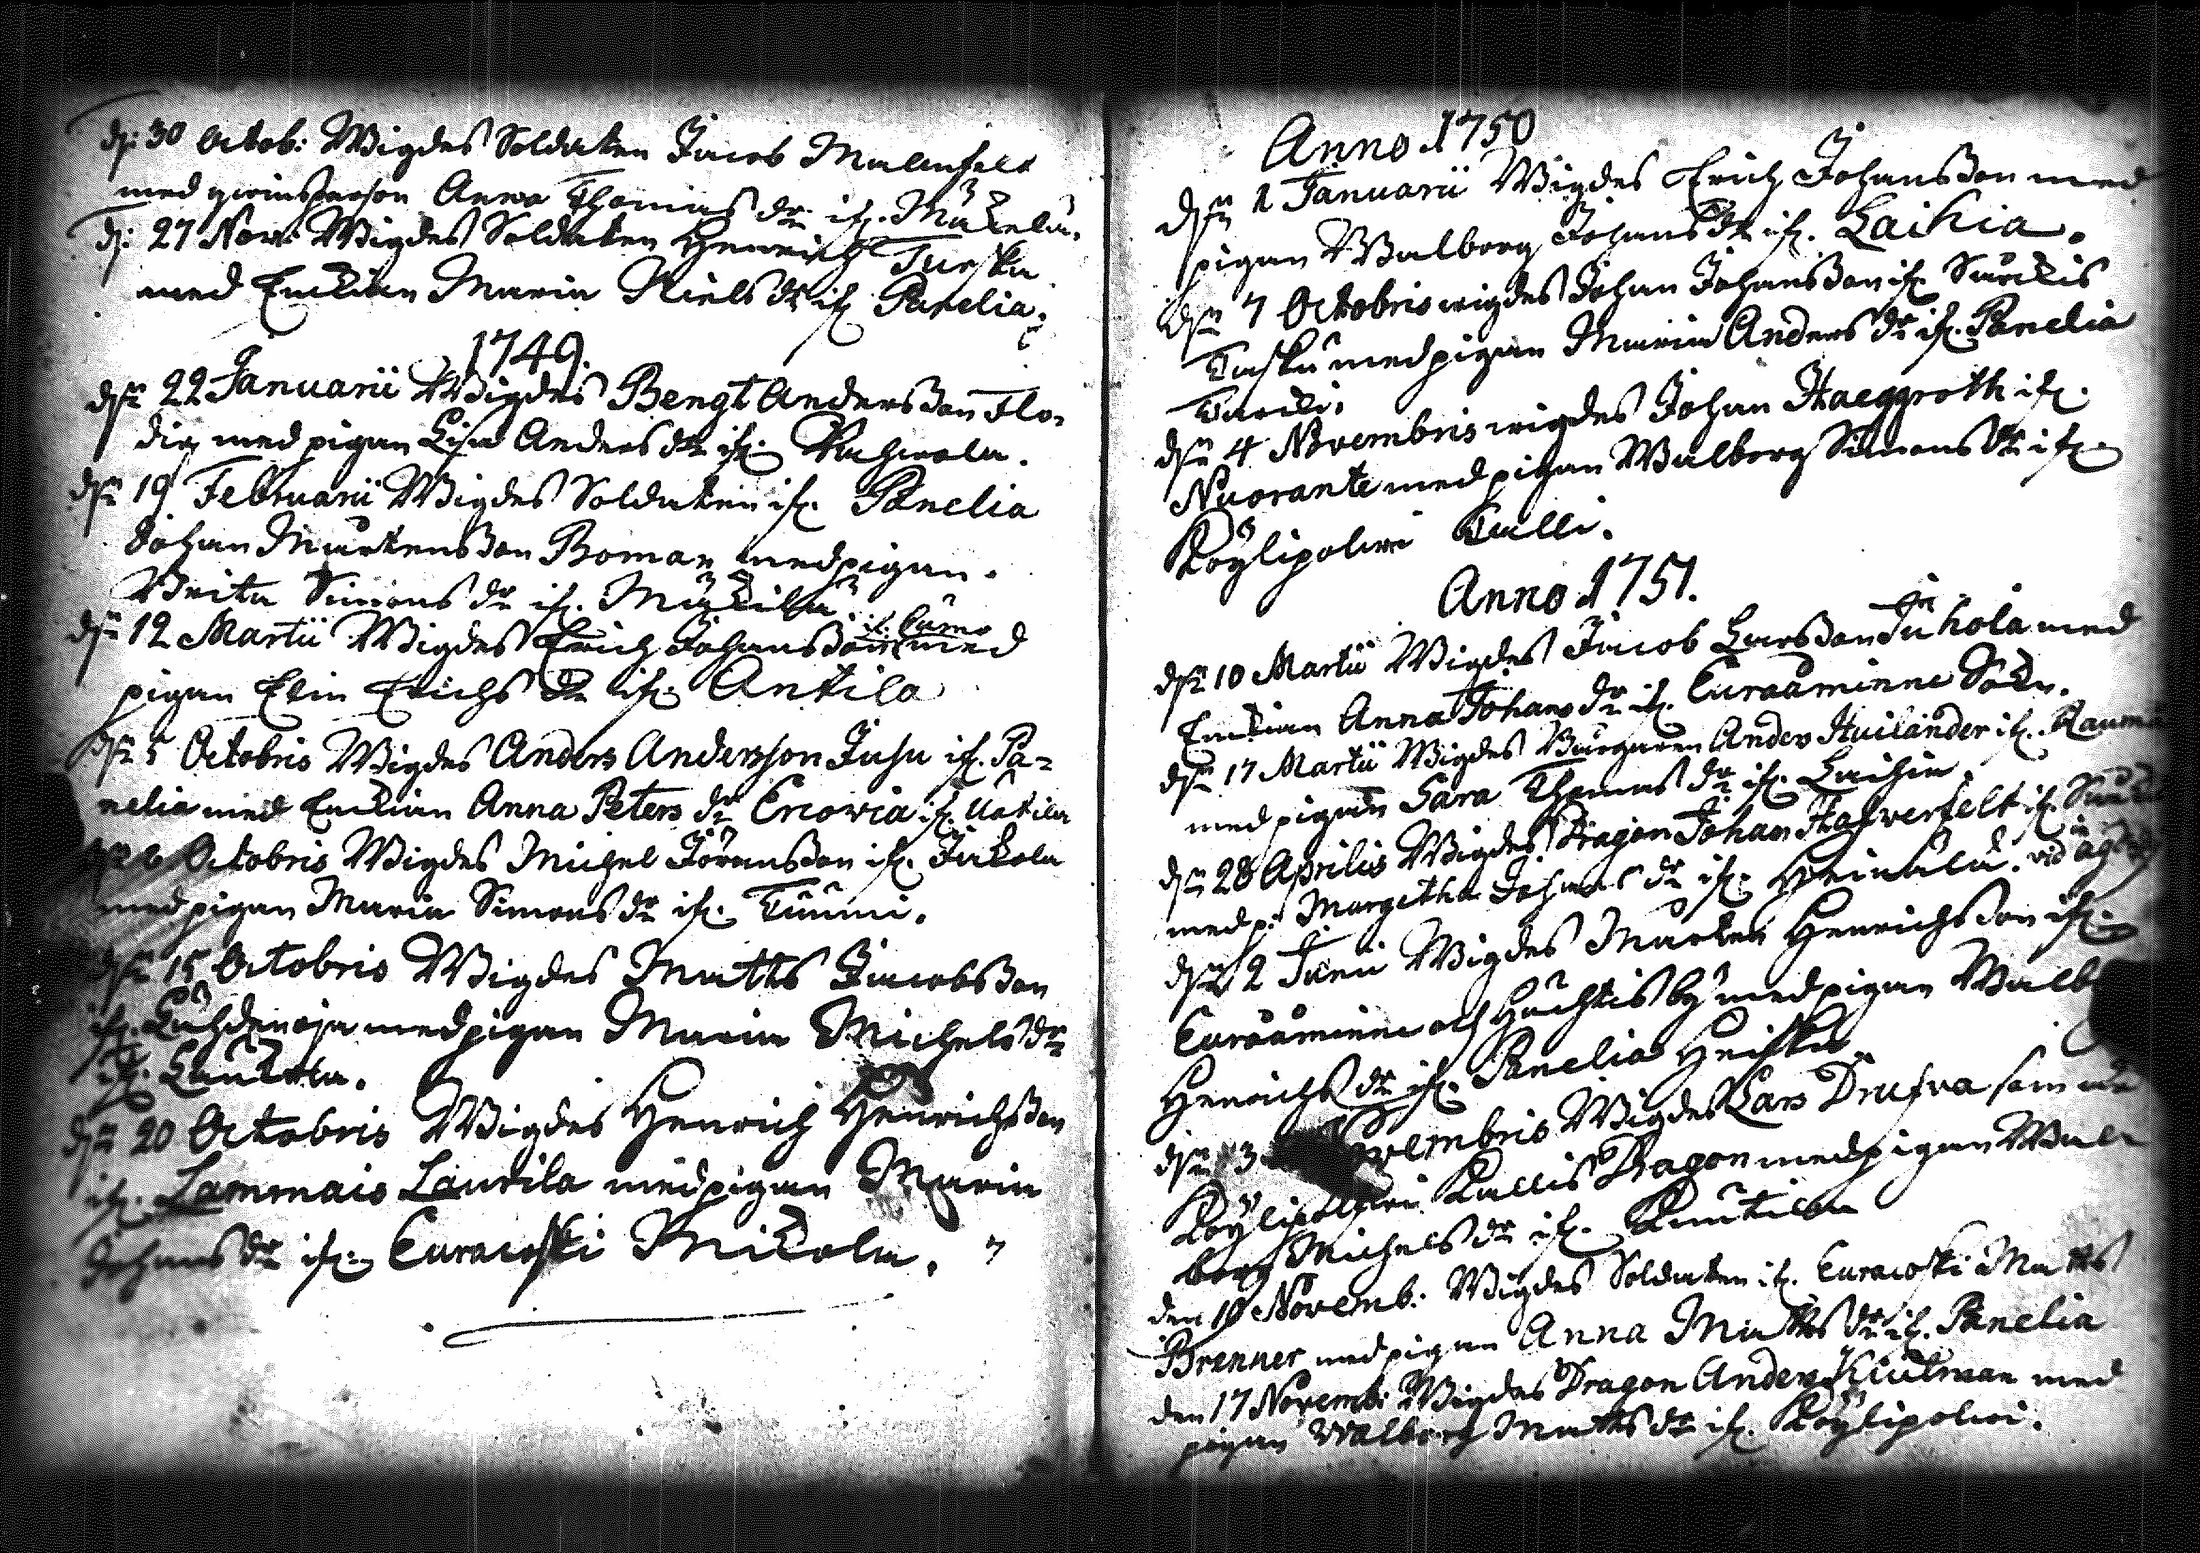 d: 30 Octob: Wigdes Soldaten Jacob Malmfelt
med qwinsperson Anna Thomas dr if. Mäkelä.
d: 27 Nov: Wigdes Soldaten Henrich Turska
med Enkian Maria Niels dr if. Panelia.
1749.
dn 22 Januarii Wigdes Bengt Andersson Flo-
din med pigan Lisa Anders dr if.
dn 19 Februarii Wigdes Soldaten if. Panelia
Johan Mårtensson Boman med pigan
Brita Simons dr if. Mäkilä.
if. Cumo
dn 12 Martii Wigdes Erich Johansson med
pigan Elin Erichs dr if. Antila
dn 5 Octobris Wigdes Anders Andersson Jusu if. Pa-
nelia med Enkian Anna Peters dr if. Uotila
Octobris Wigdes Michel Göransson if. Jukola
med pigan Maria Simons dr if. Tuomi.
dn 15 Octobris Wigdes Matts Jacobsson
if. Lähdenoja med pigan Maria Michels dr
if. Laukola.
dn 20 Octobris Wigdes Henrich Henrichsson
if. Lammais Laurila med pigan Maria
Johans dr if. Euracoski Mikola.
Anno 1750
dn 1 Januarii Wigdes Erich Johansson med
pigan Walborg Johans dr if. Laihia.
dn 7 Octobris wigdes Johan Johansson if. Säckis
Tasku med pigan Maria Anders dr if. Panelia
dn 4 Novembris wigdes Johan Haeggroth if.
Nuorante med pigan Walborg Simons dr if.
Köylipolwi Kalli.
Anno 1751.
dn 10 Martii Wigdes Jacob Larsson Juhola med
Enkian Anna Johans dr if. Euraåminne Sokn.
dn 17 Martii Wigdes Borgaren Anders Huilander if. Raumo
med pigan Sara Thomas dr if. Laihia.
dn 28 Aprilis Wigdes Dragon Johan Hafwerfelt if.
med p: Margetha Johans dr if. Heinilä.
dn 2 Junii Wigdes Mårten Henrichsson if.
Euraåminne och Huchtis by med pigan Walb
Henrichs dr if. Panelia Heiska
dn 3 Novembris Wigdes Lars Drufva
Köylipolwi Kallis Dragon med pigan Wal-
borg Michels dr if. Knuutila
den 10 Novemb: Wigdes Soldaten if. Euracoski Matts
Brenner med pigan Anna Matts dr if. Panelia
den 17 Novemb: Wigdes Dragon Anders Kiulman med
pigan Walborg Matts dr if. Köylipolwi.